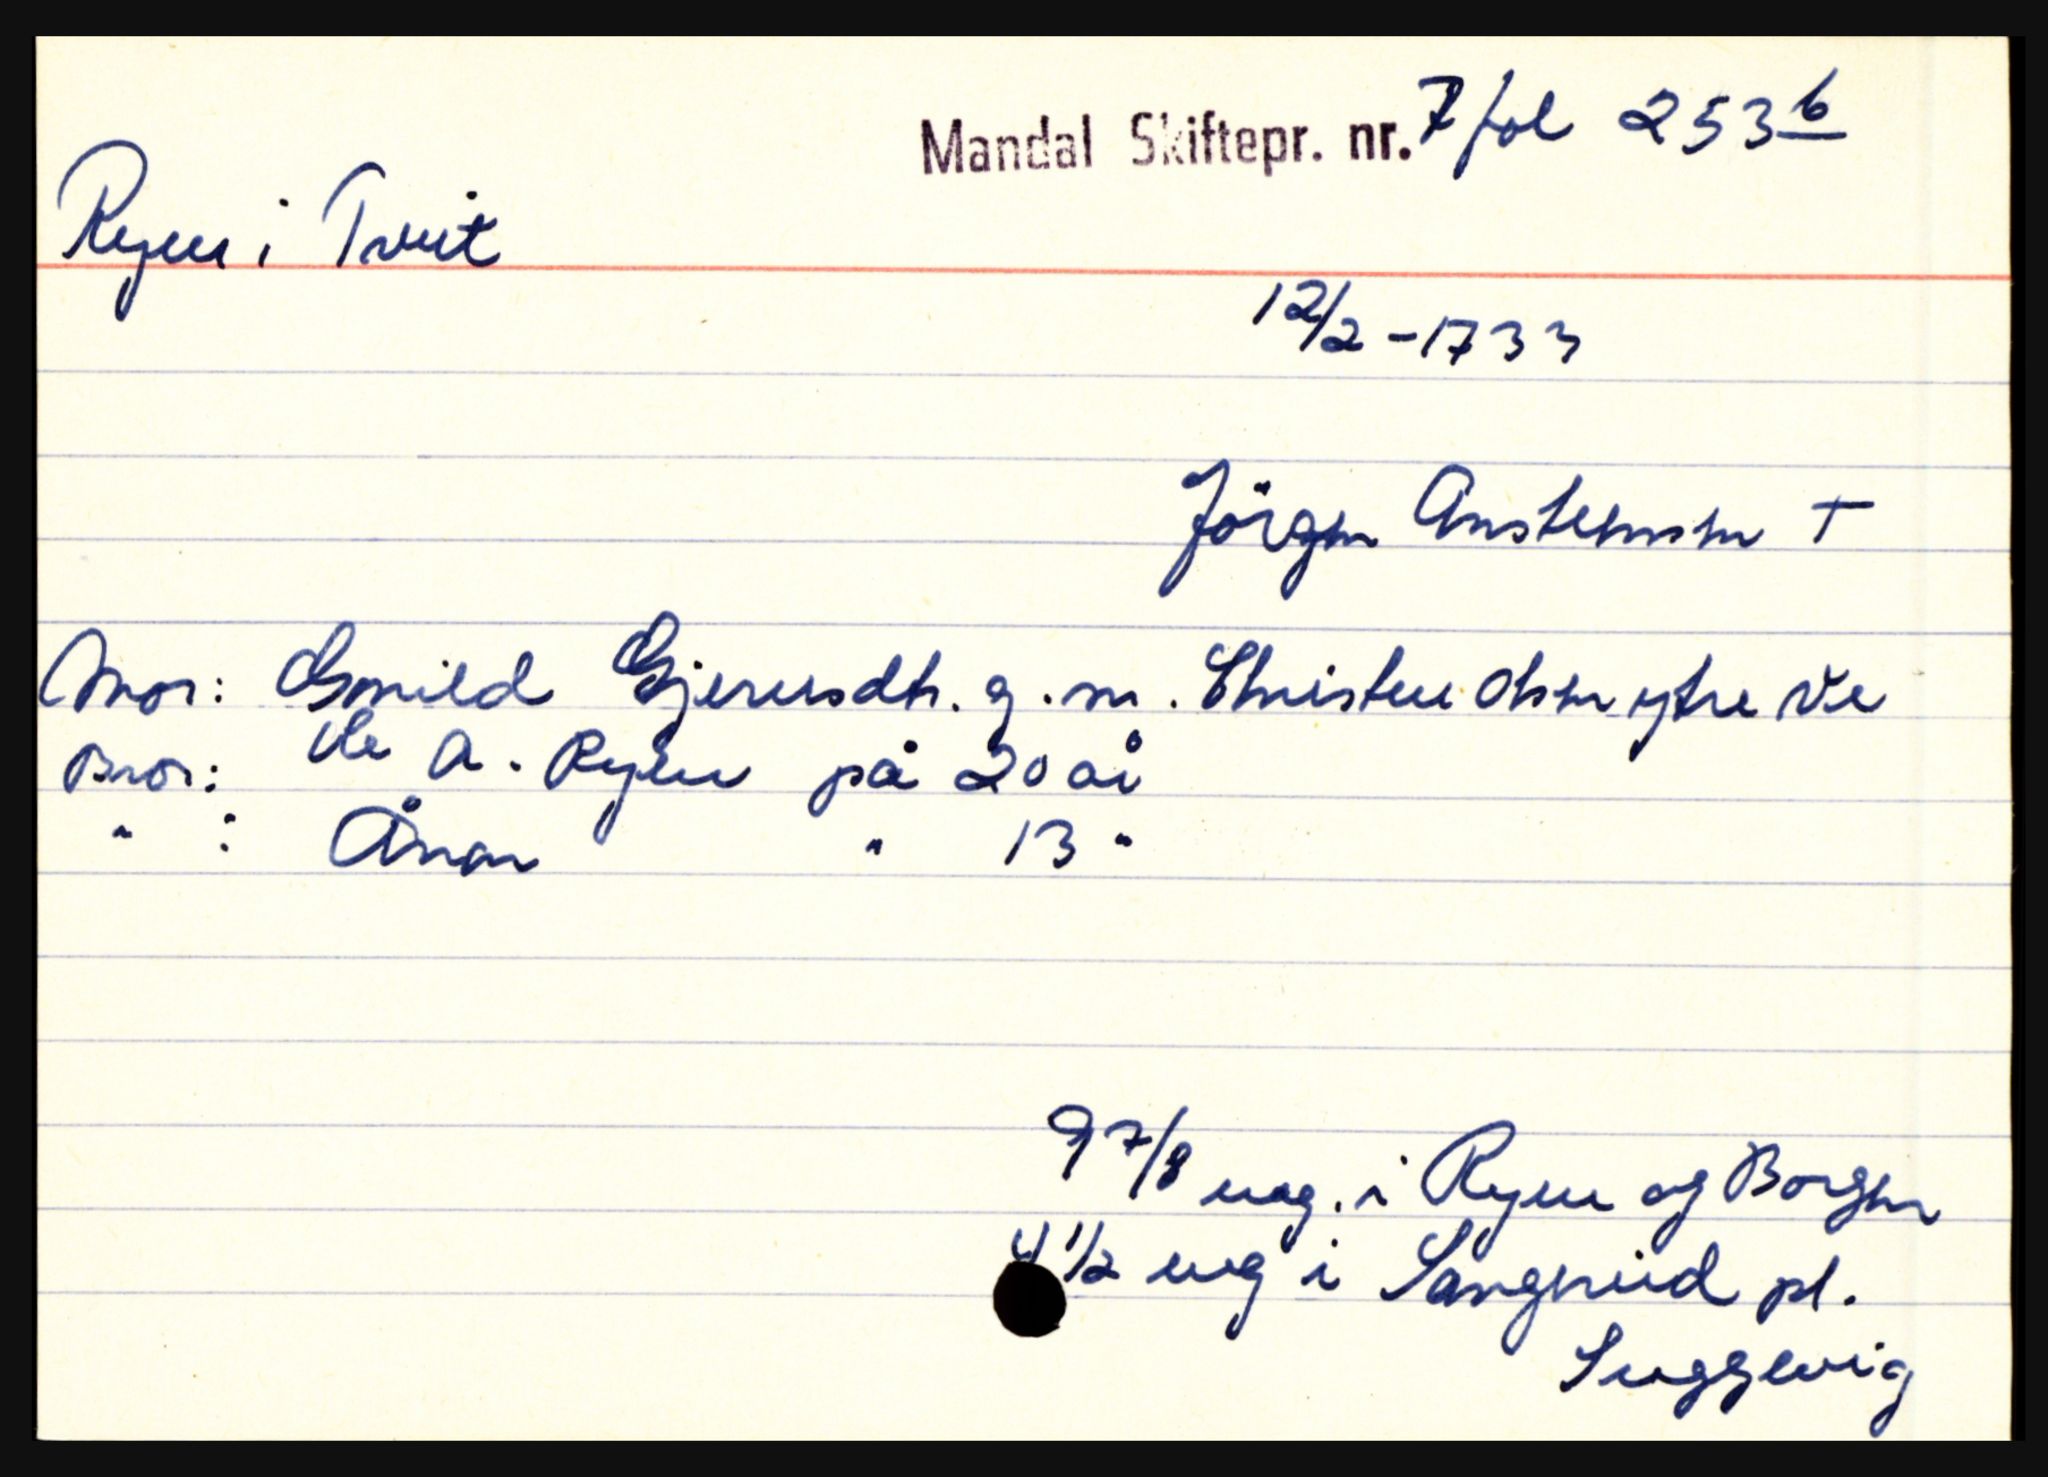 Mandal Skiftepr. nr. 7 fol 253 b
Ryen i Tveit
12/2 - 1733
Jörgen Anstensen +
Mor: Gunild Gjerusdtr. g.m. Christen Olsen ytre Ve
Bror: Ole A. Ryen på 20 år
" : Ånon " 13 "
9 7/8 eng. i Ryen og Borgen
4 1/2 eng i Sangvid pl.
Suggevig